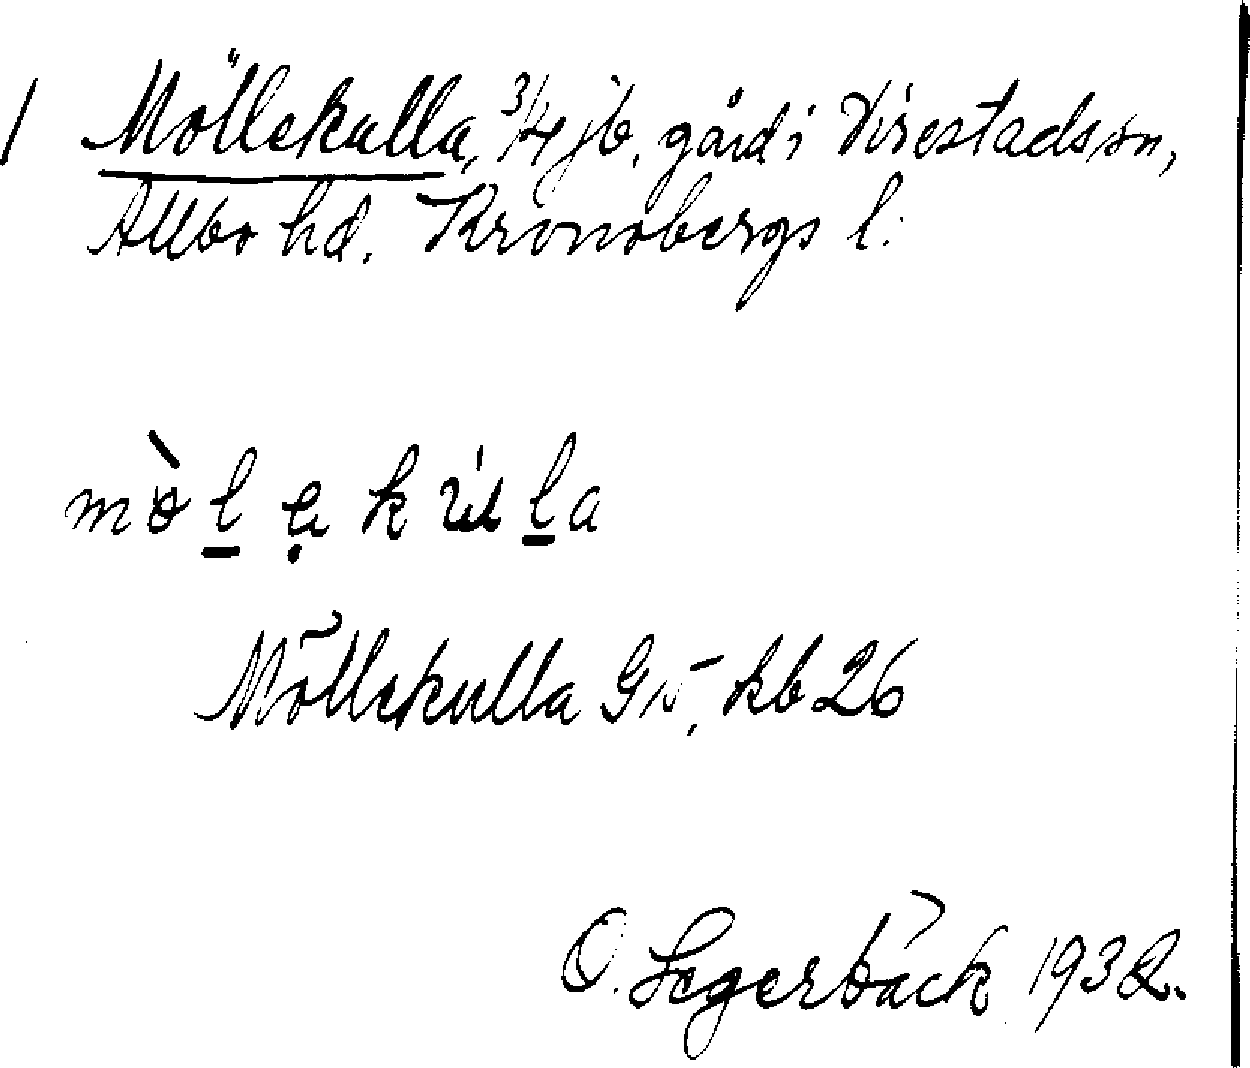 / Möllekulla, 3/4 jb. gård i Virestads sn,
Allbo hd. Kronobergs l.
Möllekulla GN, kb 26
O. Segerbäck 1932.